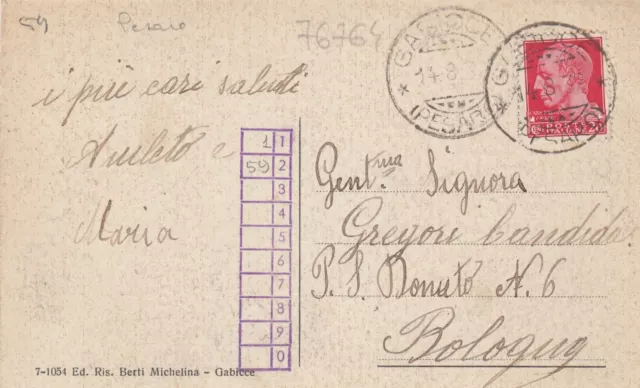 54
Pesaro
76764
GABICCE
14.8
(PESARO)
i più cari saluti
Amleto e
Maria
1 1
59 2
3
4
5
6
7
8
9
0
Gent.ma Signora
Gregori Candida
P. S. Donato N. 6
Bologna
7-1054 Ed. Ris. Berti Michelina - Gabicce